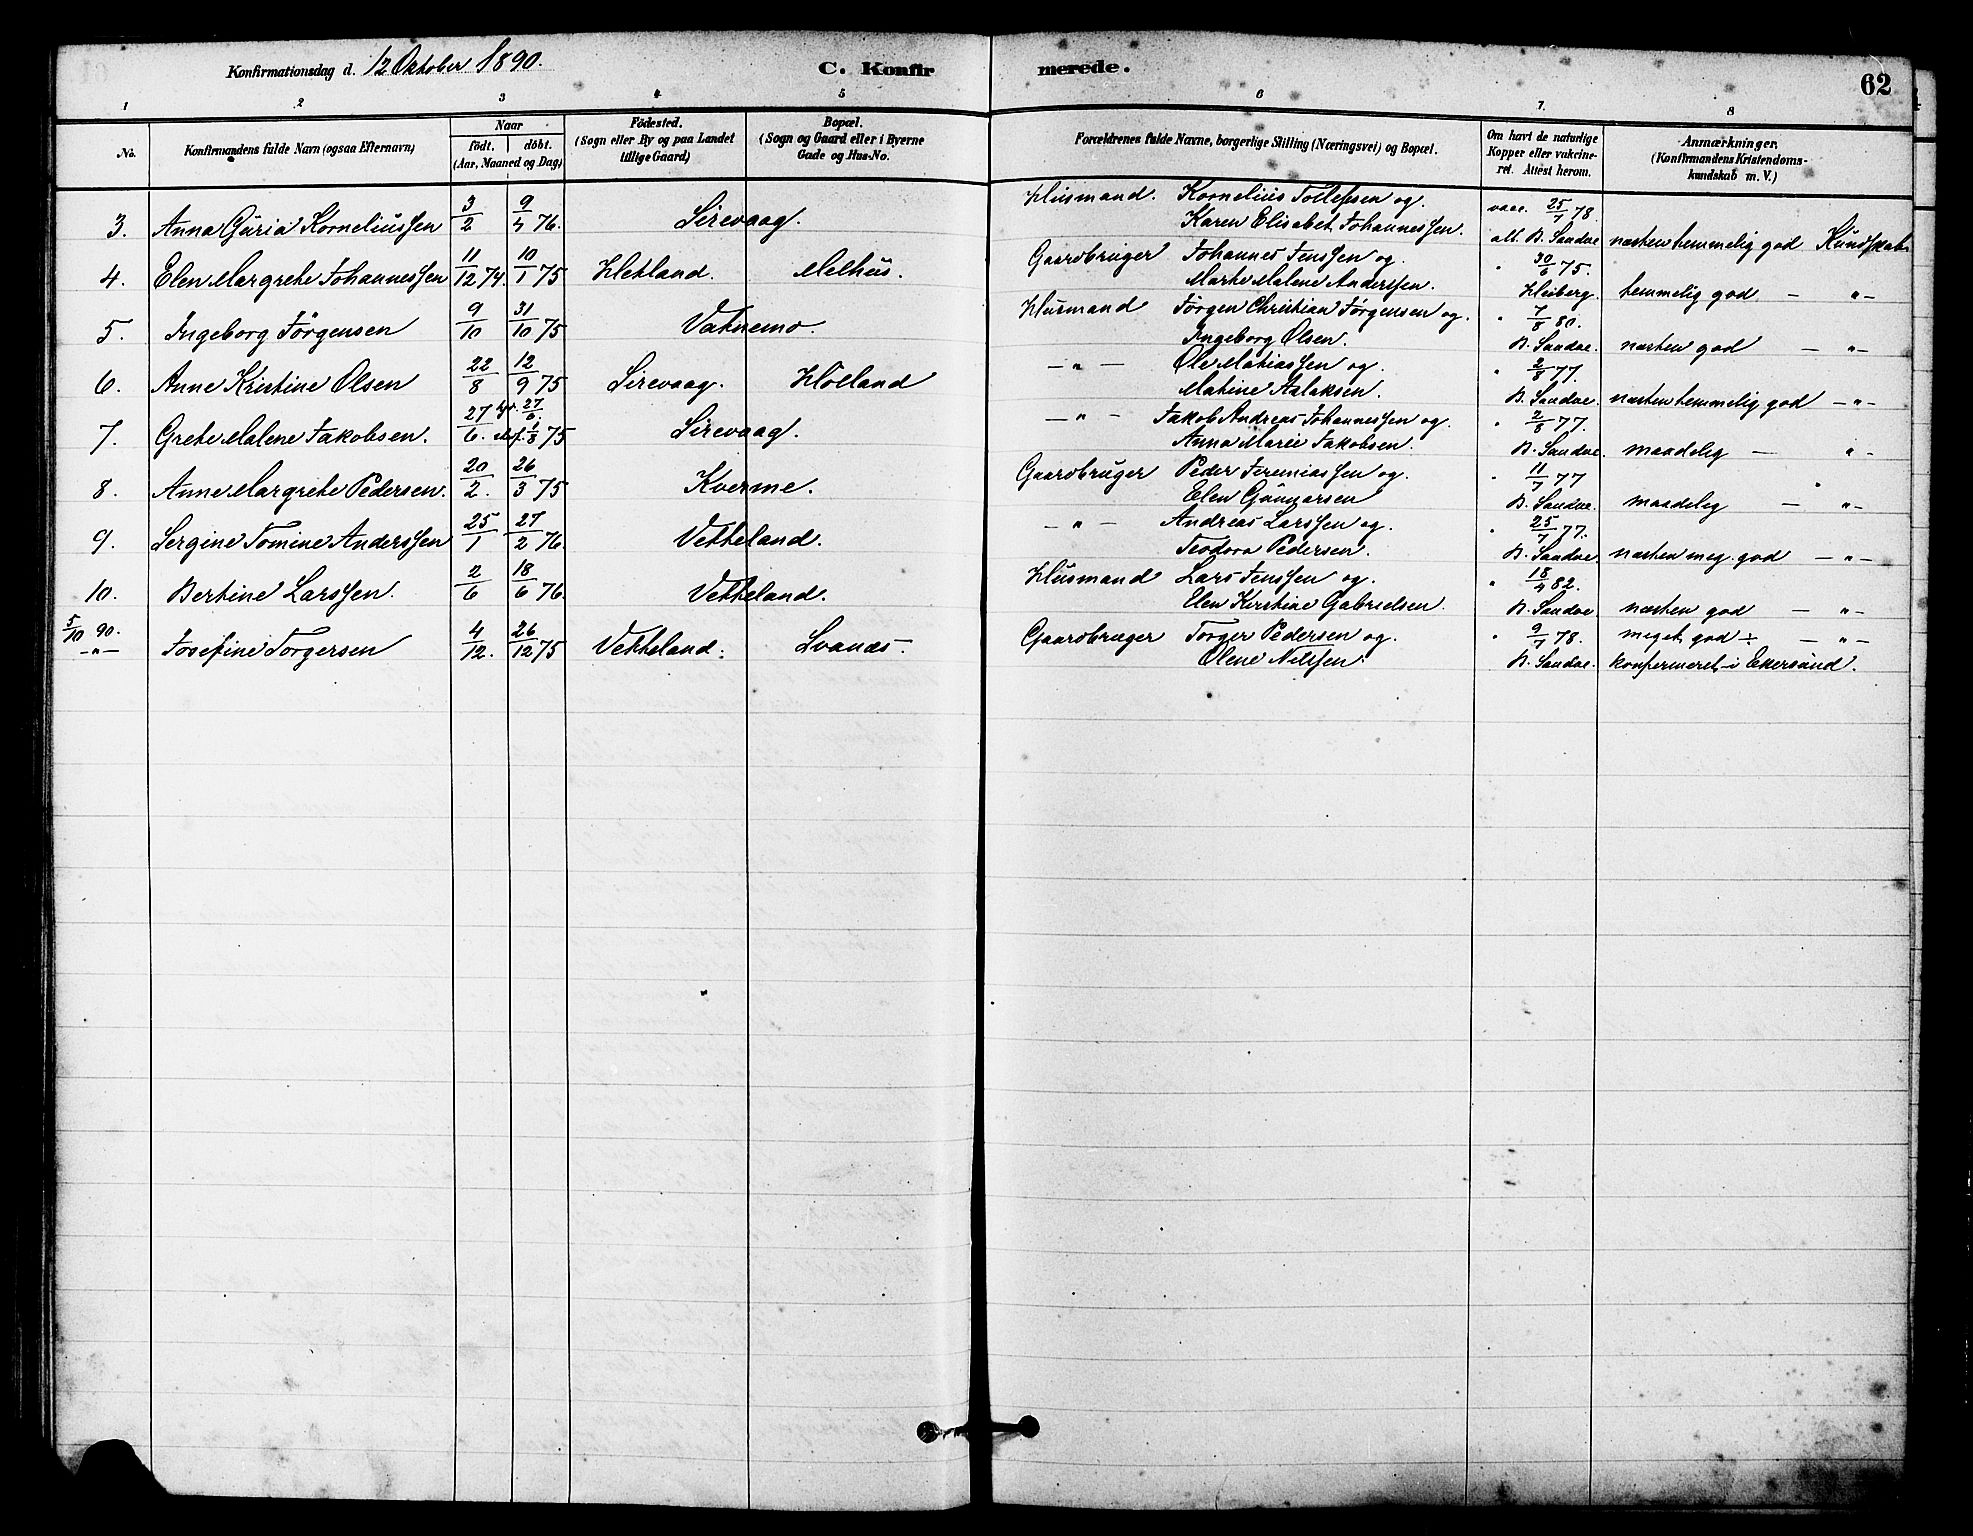 Konfirmationsdag d. 12 Oktober 1890. C. Konfirmerede. 62
1 2 3 4 5 6 7. 8
No. Konfirmandens fulde Navn (ogsaa Efternavn) Naar født. døbt. (Aar, Maaned og Dag) Födested. (Sogn eller By og paa Landet tillige Gaard) Bopæl. (Sogn og Gaard eller i Byerne Gade og Hus-No. Forældrenes fulde Navne, borgerlige Stilling (Næringsvei) og Bopæl. Om havt de naturlige Kopper eller vakcineret. Attest herom. Anmærkninger. (Konfirmandens Kristendomskundskab m. V.)
3. Anna Guria Korneliussen 3/2 9/4 76. Sirevaag. Husmand. Kornelius Tollefsen og vacc. 25/7 78.
Karen Elisabet Johannessen. att. B. Sandve næsten temmelig god Kundskab
4. Elen Margrete Johannessen 11/12 74. 10/1 75 Hetland. Melhus. Gaardbruger Johannes Jenssen og " 30/6 75.
Marte Malene Anderssen. Heiberg. temmelig god — " —
5. Ingeborg Jörgensen 9/10 31/10 75 Vatnemo. Husmand Jörgen Christian Jörgensen og. " 7/8 80.
Ingeborg Olsen. B. Sandve. næsten god — " —
6. Anne Kristine Olsen 22/8 12/9 75 Sirevaag. Holland — " — Ole Matiassen og. " 2/8 77.
Matine Aslaksen. B. Sandve. næsten temmelig god — " —
7. Grete Malene Jakobsen. 27/6. hj. 27/6. st.f. 1/8 75 Sirevaag. — " — Jakob Andreas Johannessen og. " 2/8 77.
Anna Marie Jakobsen. B. Sandve. maadelig — " —
8. Anne Margrete Pedersen. 20/2. 26/3 75 Kverme. Gaardbruger Peder Jeremiassen og. " 11/7 77
Elen Gunnarsen B. Sandve. maadelig — " —
9. Sergine Tomine Anderssen 25/1 27/2 76. Vetteland. — " — Andreas Larssen og. " 25/7 77.
Teodora Pedersen. B. Sandve. næsten meg. god — " —
10. Bertine Larssen. 2/6 18/6 76. Vetteland. Husmand Lars Jenssen og. " 18/4 82.
Elen Kirstine Gabrielsen. B. Sandve næsten god — " —
5/10 90. — " — Josefine Torgersen 4/12. 26/12 75 Vetteland. Svanæs. Gaardbruger Torger Pedersen og. " 9/7 78. meget god ÷ — " —
Olene Nilssen. B. Sandve. konfermeret i Ekersund.